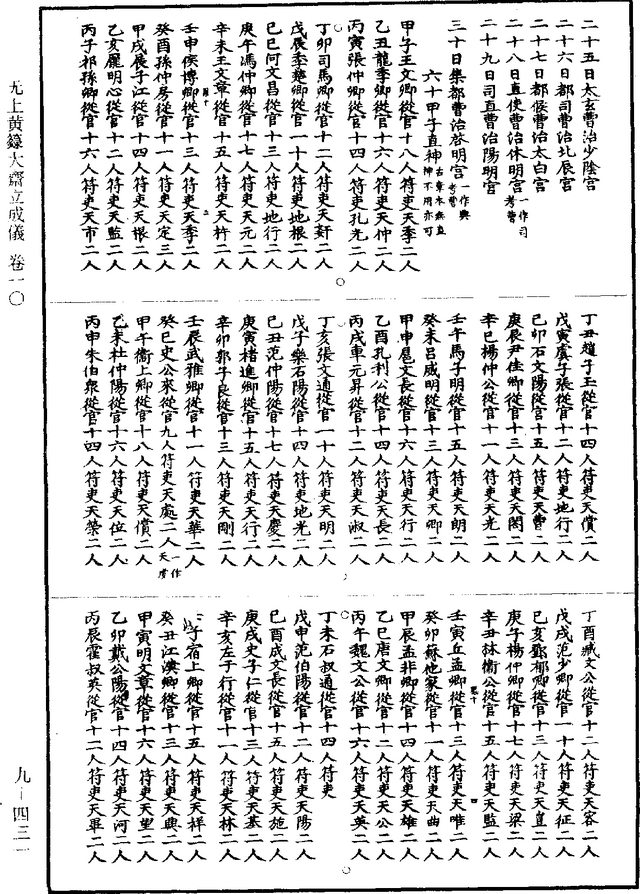 二十五日太玄曹治少陰宮
二十六日都司曹治北辰宮
二十七日都候曹治太白宮
二十八日直使曹治休明宮一作司考曹
二十九日司直曹治陽明宮
三十日集都曹治啓明宮一作典考曹
六十甲子直神古章本無直神不用亦可
甲子王文卿從官十八人符吏天季二人
乙丑龍季卿從官十六人符吏天仲二人
丙寅張仲卿從官十四人符吏孔光二人
丁卯司馬卿從官十二人符吏天
戊辰季 卿從官十二人符吏地根二人
己巳何文昌從官十三人符吏地行二人
庚午馮仲卿從官十七人符吏天元二人
辛未王文章從官十五人符吏天杵二人
壬申侯博卿從官十三人符吏天季二人
癸酉孫仲房從官十一人符吏天定三人
甲戌展子江從官十四人符吏天根二人
乙亥龐明心從官十二人符吏天監二人
丙子祁孫卿從官十六人符吏天市二人
丁丑趙子玉從官十四人符吏天償二人
戊寅虞子張從官十二人符吏地行二人
己卯石文陽從官十五人符吏天曹二人
庚辰尹佳卿從官十三人符吏天閣二人
辛巳楊仲公從官十一人符吏天光二人
壬午馬子明從官十五人符吏天朗二人
癸未呂威明從官十三人符吏天卿二人
甲申扈文長從官十六人符吏天行二人
乙酉孔利公從官十四人符吏天長二人
丙戌車元昇從官十二人符吏天淑二人
丁亥張文通從官一十人符吏天明二人
戊子樂石陽從官十四人符吏地光二人
己丑范仲陽從官十七人符吏天慶二人
庚寅褚進卿從官十五人符吏天行二人
辛卯郭子良從官十三人符吏天剛二人
壬辰武雅卿從官十一人符吏天華二人
癸巳史公來從官九人符吏天處二人
甲午衞上卿從官十八人符吏天償二人
乙未杜仲陽從官十六人符吏天位二人
丙申朱伯衆從官十四人符吏天榮二人
丁酉臧文公從官十二人符吏天容二人
戊戌范少卿從官一十人符吏天征二人
己亥鄧都卿從官十三人符吏天直二人
庚子楊仲卿從官十七人符吏天梁二人
辛丑林衞公從官十五人符吏天監二人
壬寅丘孟卿從官十三人符吏天唯二人
癸卯蘇他家從官十一人符吏天曲二人
甲辰孟非卿從官十四人符吏天雄二人
乙巳唐文卿從官十二人符吏天公二人
丙午魏文公從官十六人符吏天英二人
丁未石叔通從官十四人符吏
戊申范伯陽從官十二人符吏天陽二人
己酉成文長從官十五人符吏天施二人
庚戌史子仁從官十三人符吏天基二人
辛亥左子行從官十一人符吏天林二人
子宿上卿從官十五人符吏天祥二人
癸丑江漢卿從官十三人符吏天典二人
甲寅明文章從官十六人符吏天望二人
乙卯戴公陽從官十四人符吏天河二人
丙辰霍叔英從官十二人符吏天畢二人
无上黄籙大齋立成儀 卷一〇
九-四三一